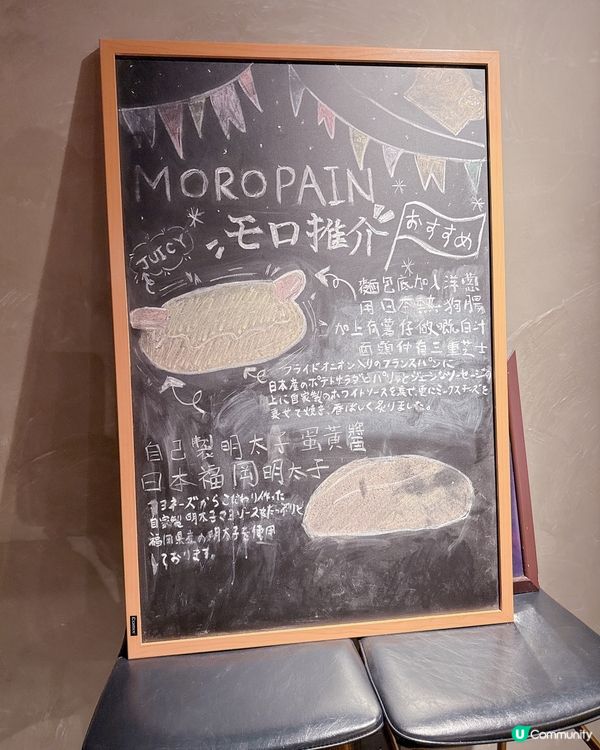 MOROPAIN
モロ推介
おすすめ
JUICY
麵包底加入洋蔥
用日本熱狗腸
加上有薯仔做嘅白汁
面頭仲有三重芝士
フライドオニオン入りのフランスパンに
日本産のポテトサラダとパリッとジューシなソーセージの
上に自家製のホワイトソースを乗せ、更にミックスチーズを
乗せて焼き、香ばしく炙りました。
自己製明太子蛋黃醬
日本福岡明太子
マヨネーズからこだわり作った
自家製明太子マヨソースをたっぷりと
福岡県産の明太子を使用
しております。
U Community